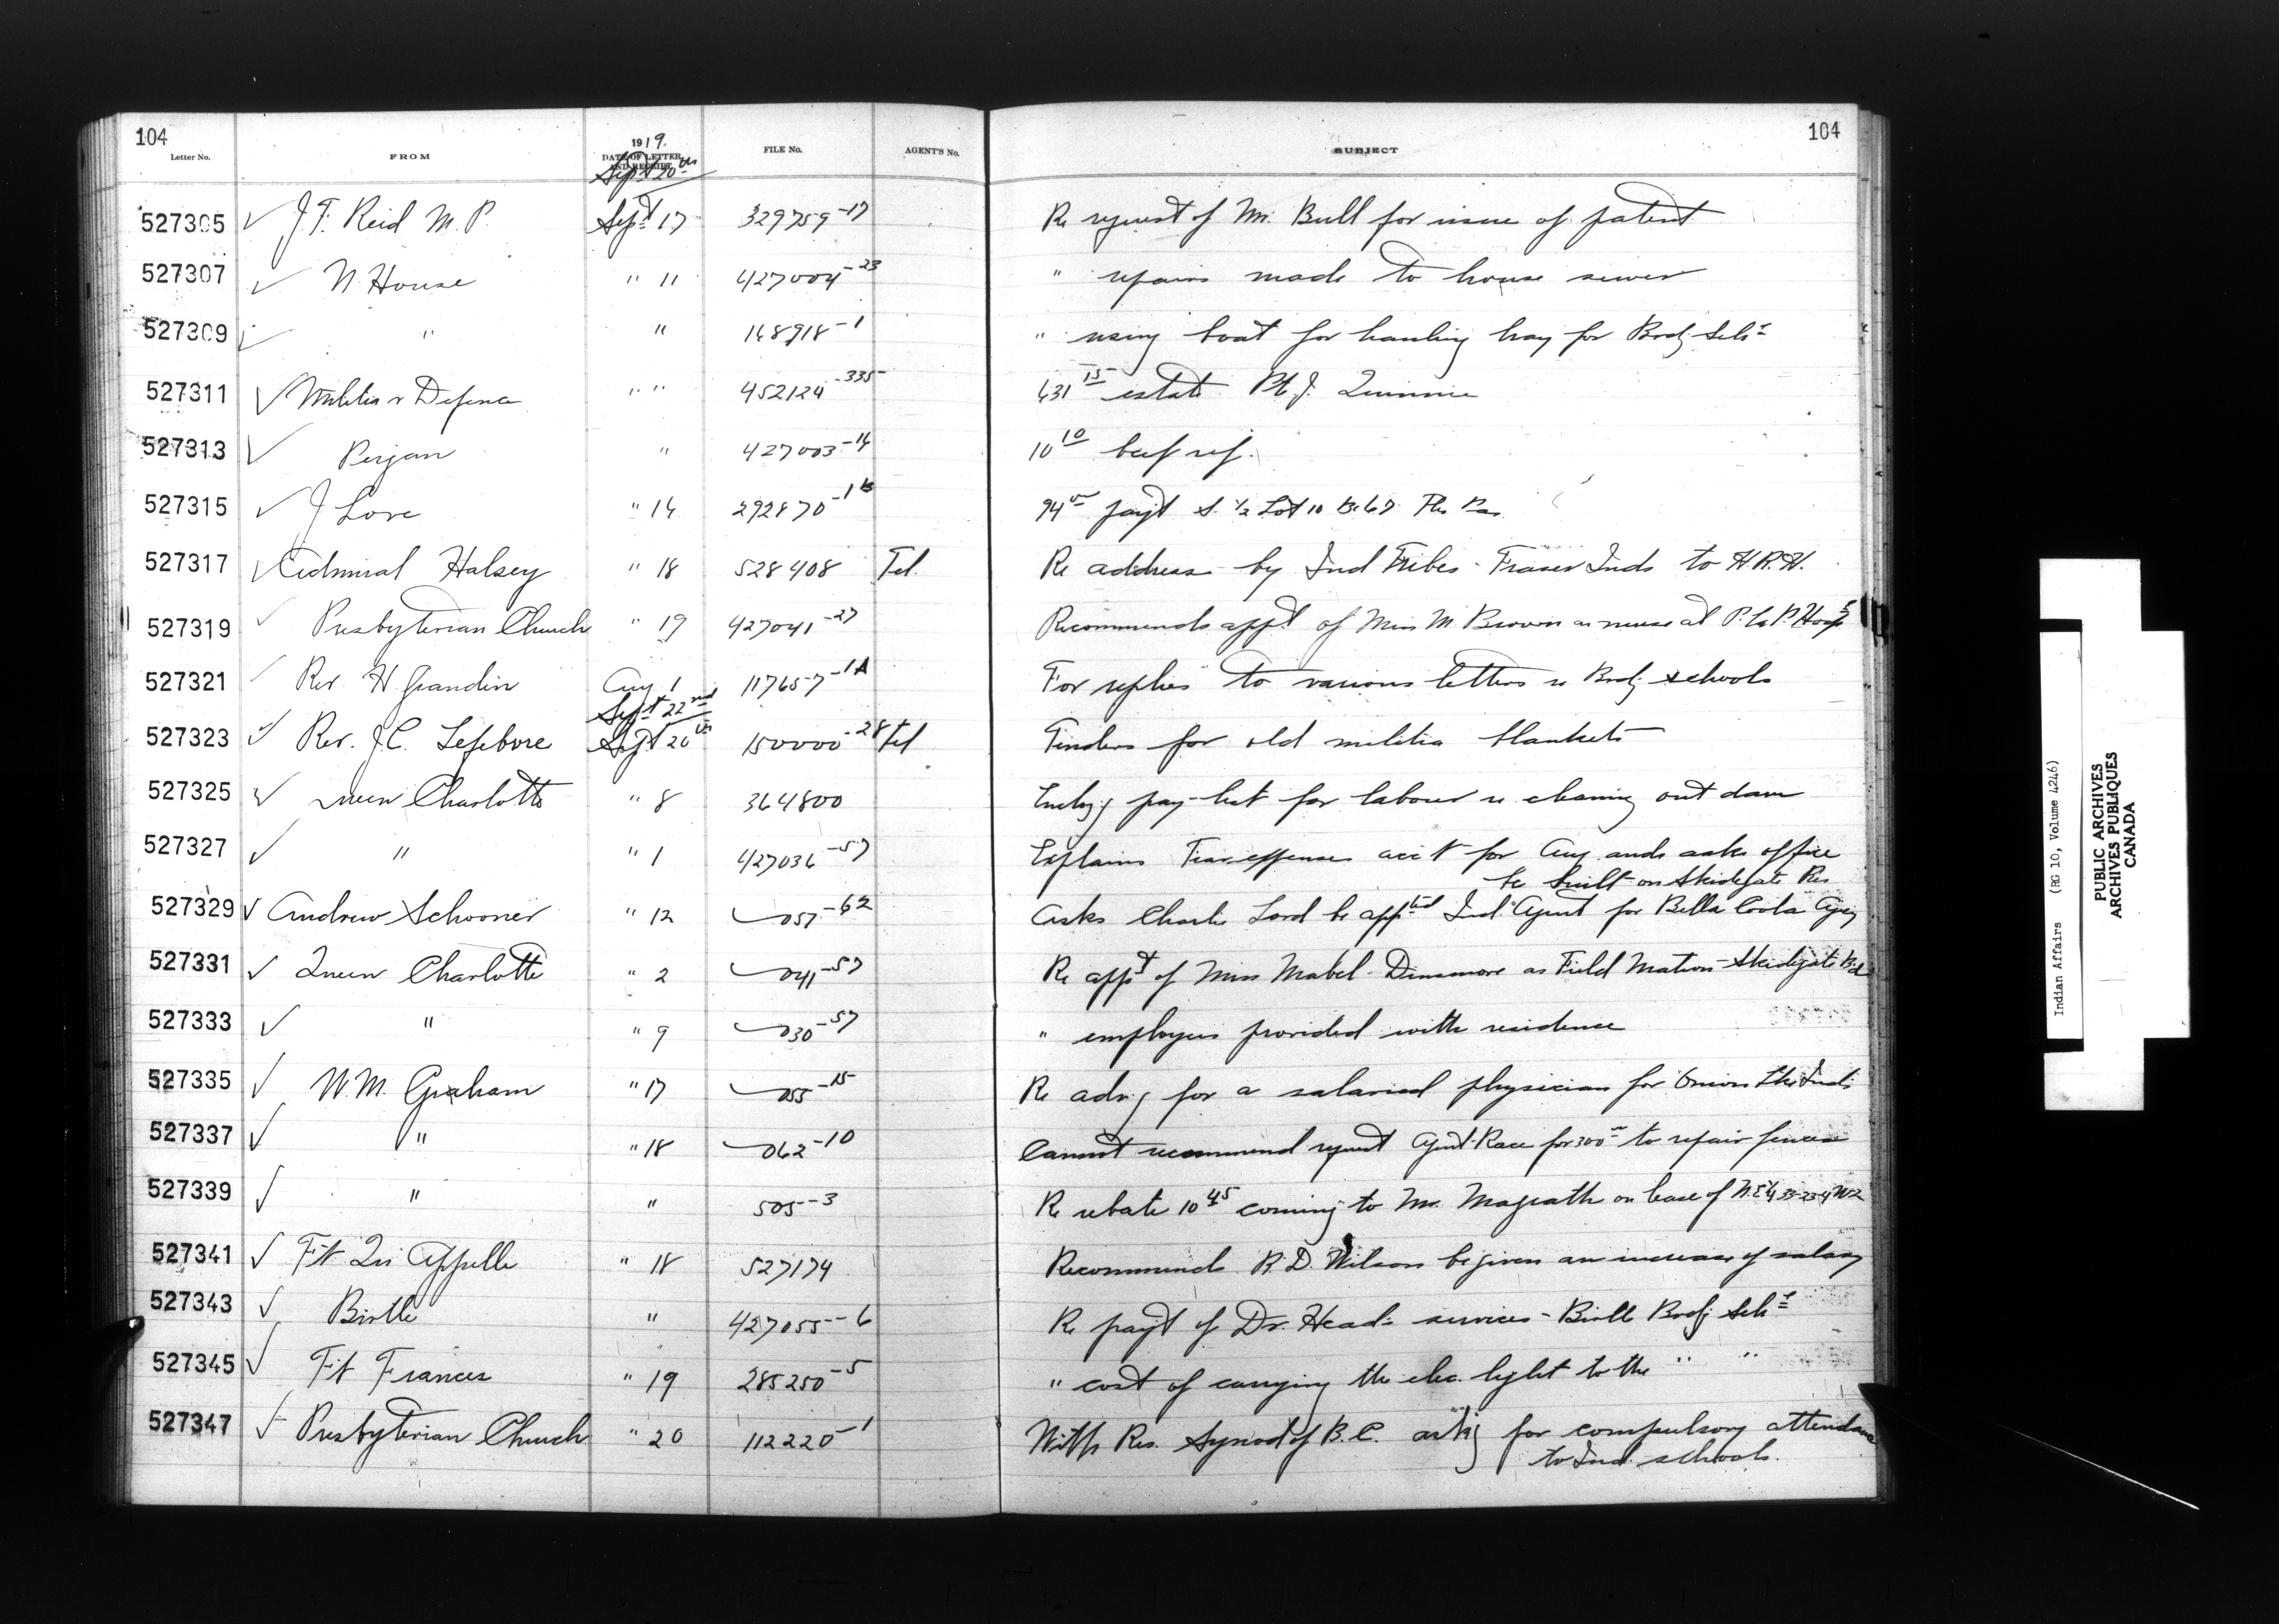 104
104
Letter No. FROM 1919. DATE OF LETTER AND RECEIPT FILE No. AGENT'S No. SUBJECT
Sept 20th
527305 ✓ J. F. Reid M.P. Sept 17 329759-17 Re request of Mr. Bull for issue of patent
527307 ✓ N. House " 11 427004-23 " repairs made to house sewer
527309 ✓ " " 148918-1 " using boat for hauling hay for Brdg. Schl
527311 ✓ Militia & Defence " " 452124-335 431 15 estate Pte J. Quinnie
527313 ✓ " 427003-14 10 10 beef
527315 ✓ J Love " 14 292870-1B 94 00 payt S. 1/2 Lot 10 Bl 67 The Pas
527317 ✓ Admiral Halsey " 18 528408 Tel. Re address by Ind Tribes - Fraser Inds to H.R.H.
527319 ✓ Presbyterian Church " 19 427041-27 Recommends appt of Miss M. Brown as nurse at P. la P. Hosp
527321 ✓ Rev. H Grandin Aug 1 117657-1A For replies to various letters re Brdg schools
Sept 22nd
527323 ✓ Rev. J. C. Lefebvre Sept 20th 150000-28 Tel Tenders for old militia blankets
527325 ✓ Queen Charlotte " 8 364800 Enclsg pay-list for labour re cleaning out dam
527327 ✓ " " 1 427036-57 Explains Trav. expenses acc't for Aug and asks office
be built on Skidegate Res
527329 ✓ Andrew Schooner " 12 057-62 Asks Charlie Lord be apptd Ind. Agent for Bella Coola Agcy
527331 ✓ Queen Charlotte " 2 041-57 Re appt of Miss Mabel Dinsmore as Field Matron - Skidegate Bd
527333 ✓ " " 9 030-57 " employees provided with residence
527335 ✓ W. M. Graham " 17 055-15 Re advg for a salaried physician for Onion Lke Inds
527337 ✓ " " 18 062-10 Cannot recommend request Agent Race for 300 00 to repair fences
527339 ✓ " " 505-3 Re rebate 10 45 coming to Mr. Magrath on lease of N.E 1/4 33-23-4 W2
527341 ✓ Ft Qu Appelle " 18 527174 Recommends R. D. Wilson be given an increase of salary
527343 ✓ Birtle " 427055-6 Re payt of Dr. Head's services - Birtle Brdg Schl
527345 ✓ Ft Frances " 19 285250-5 " cost of carrying the elec. light to the " "
527347 ✓ Presbyterian Church " 20 112220-1 Res. Synod of B.C. ask'g for compulsory attendance
to Ind. schools.
Indian Affairs (RG 10, Volume 4246)
PUBLIC ARCHIVES
ARCHIVES PUBLIQUES
CANADA